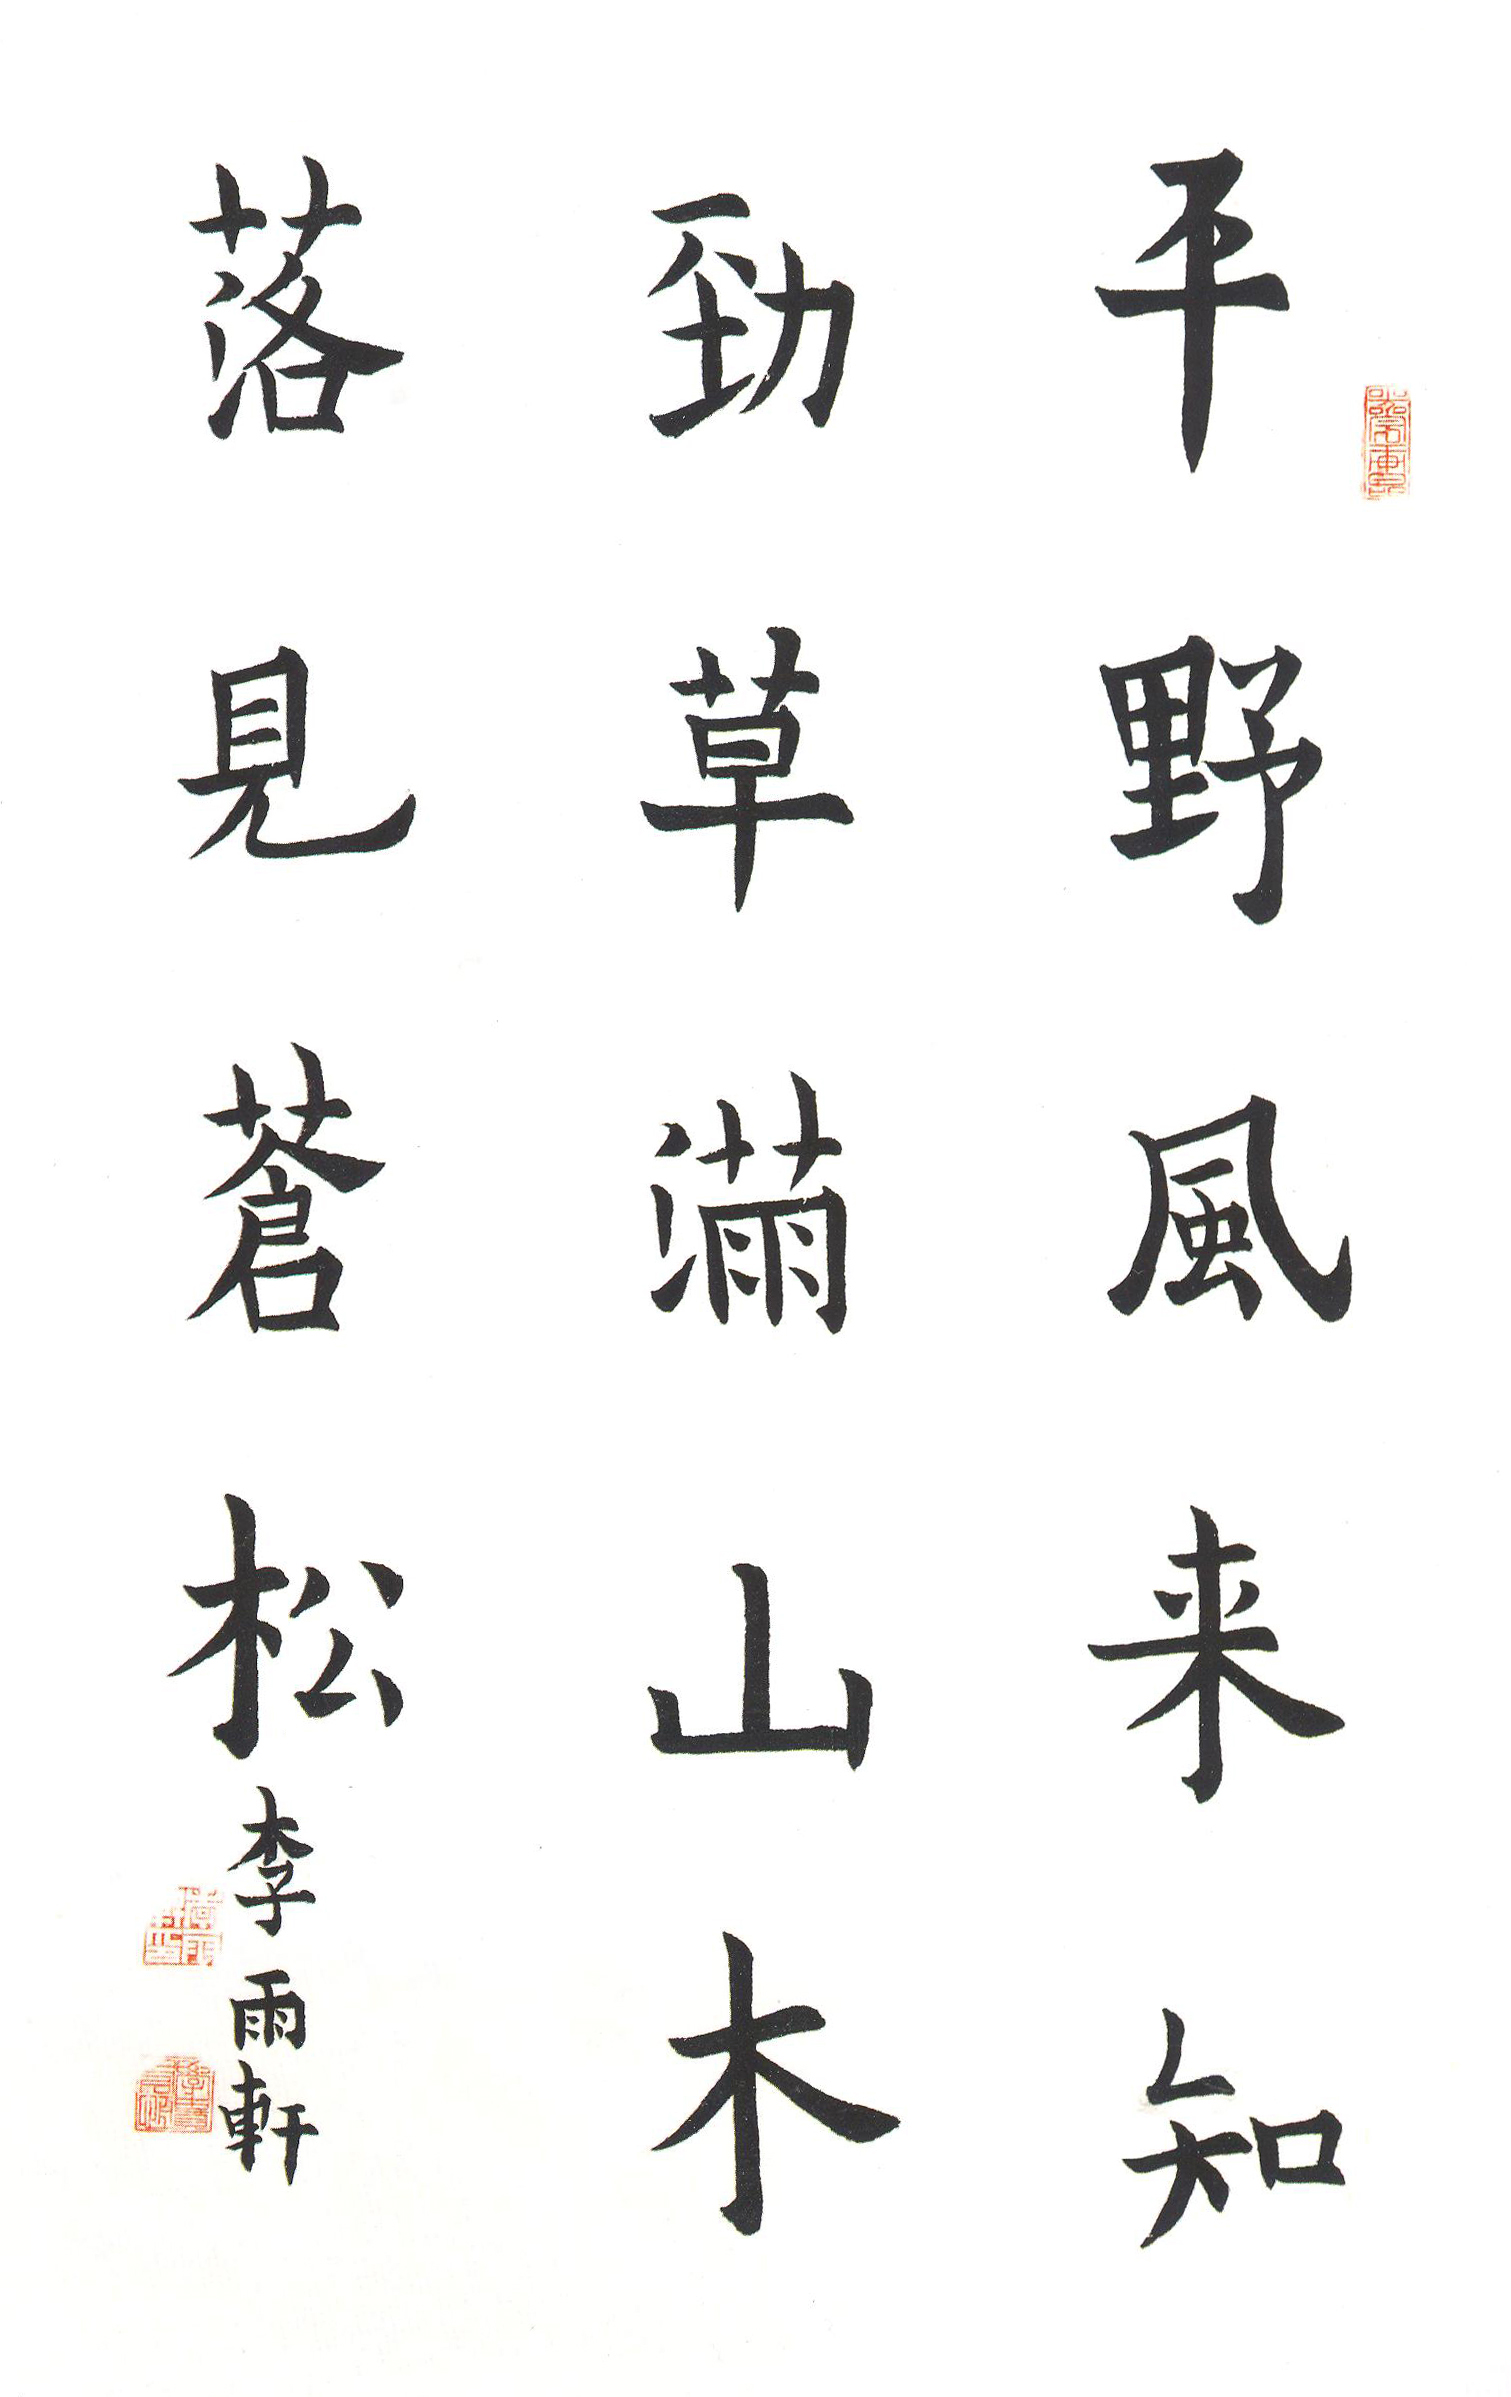 平野風来知
勁草滿山木
落見蒼松
李雨軒